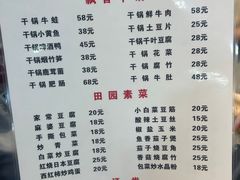 干锅牛蛙 58元
干锅小黄鱼 38元
干锅啤酒鸭 45元
干锅烟竹笋 38元
干锅鹿茸菌 38元
干锅肥肠 68元
干锅鲜牛肉 58元
干锅土豆片 25元
干锅千叶豆腐 28元
干锅花菜 28元
干锅牛筋 68元
干锅牛肚 48元
田园素菜
家常豆腐 20元
麻婆豆腐 18元
手撕包菜 18元
炒青菜 18元
白菜炒豆腐 20元
红烧日本豆腐 25元
西红柿炒鸡蛋 20元
小白菜豆筋 20元
酸辣土豆丝 18元
椒盐玉米 20元
鱼香茄子煲 25元
茄子烧豆角 25元
香菇烧腐竹 25元
炒丝瓜 18元